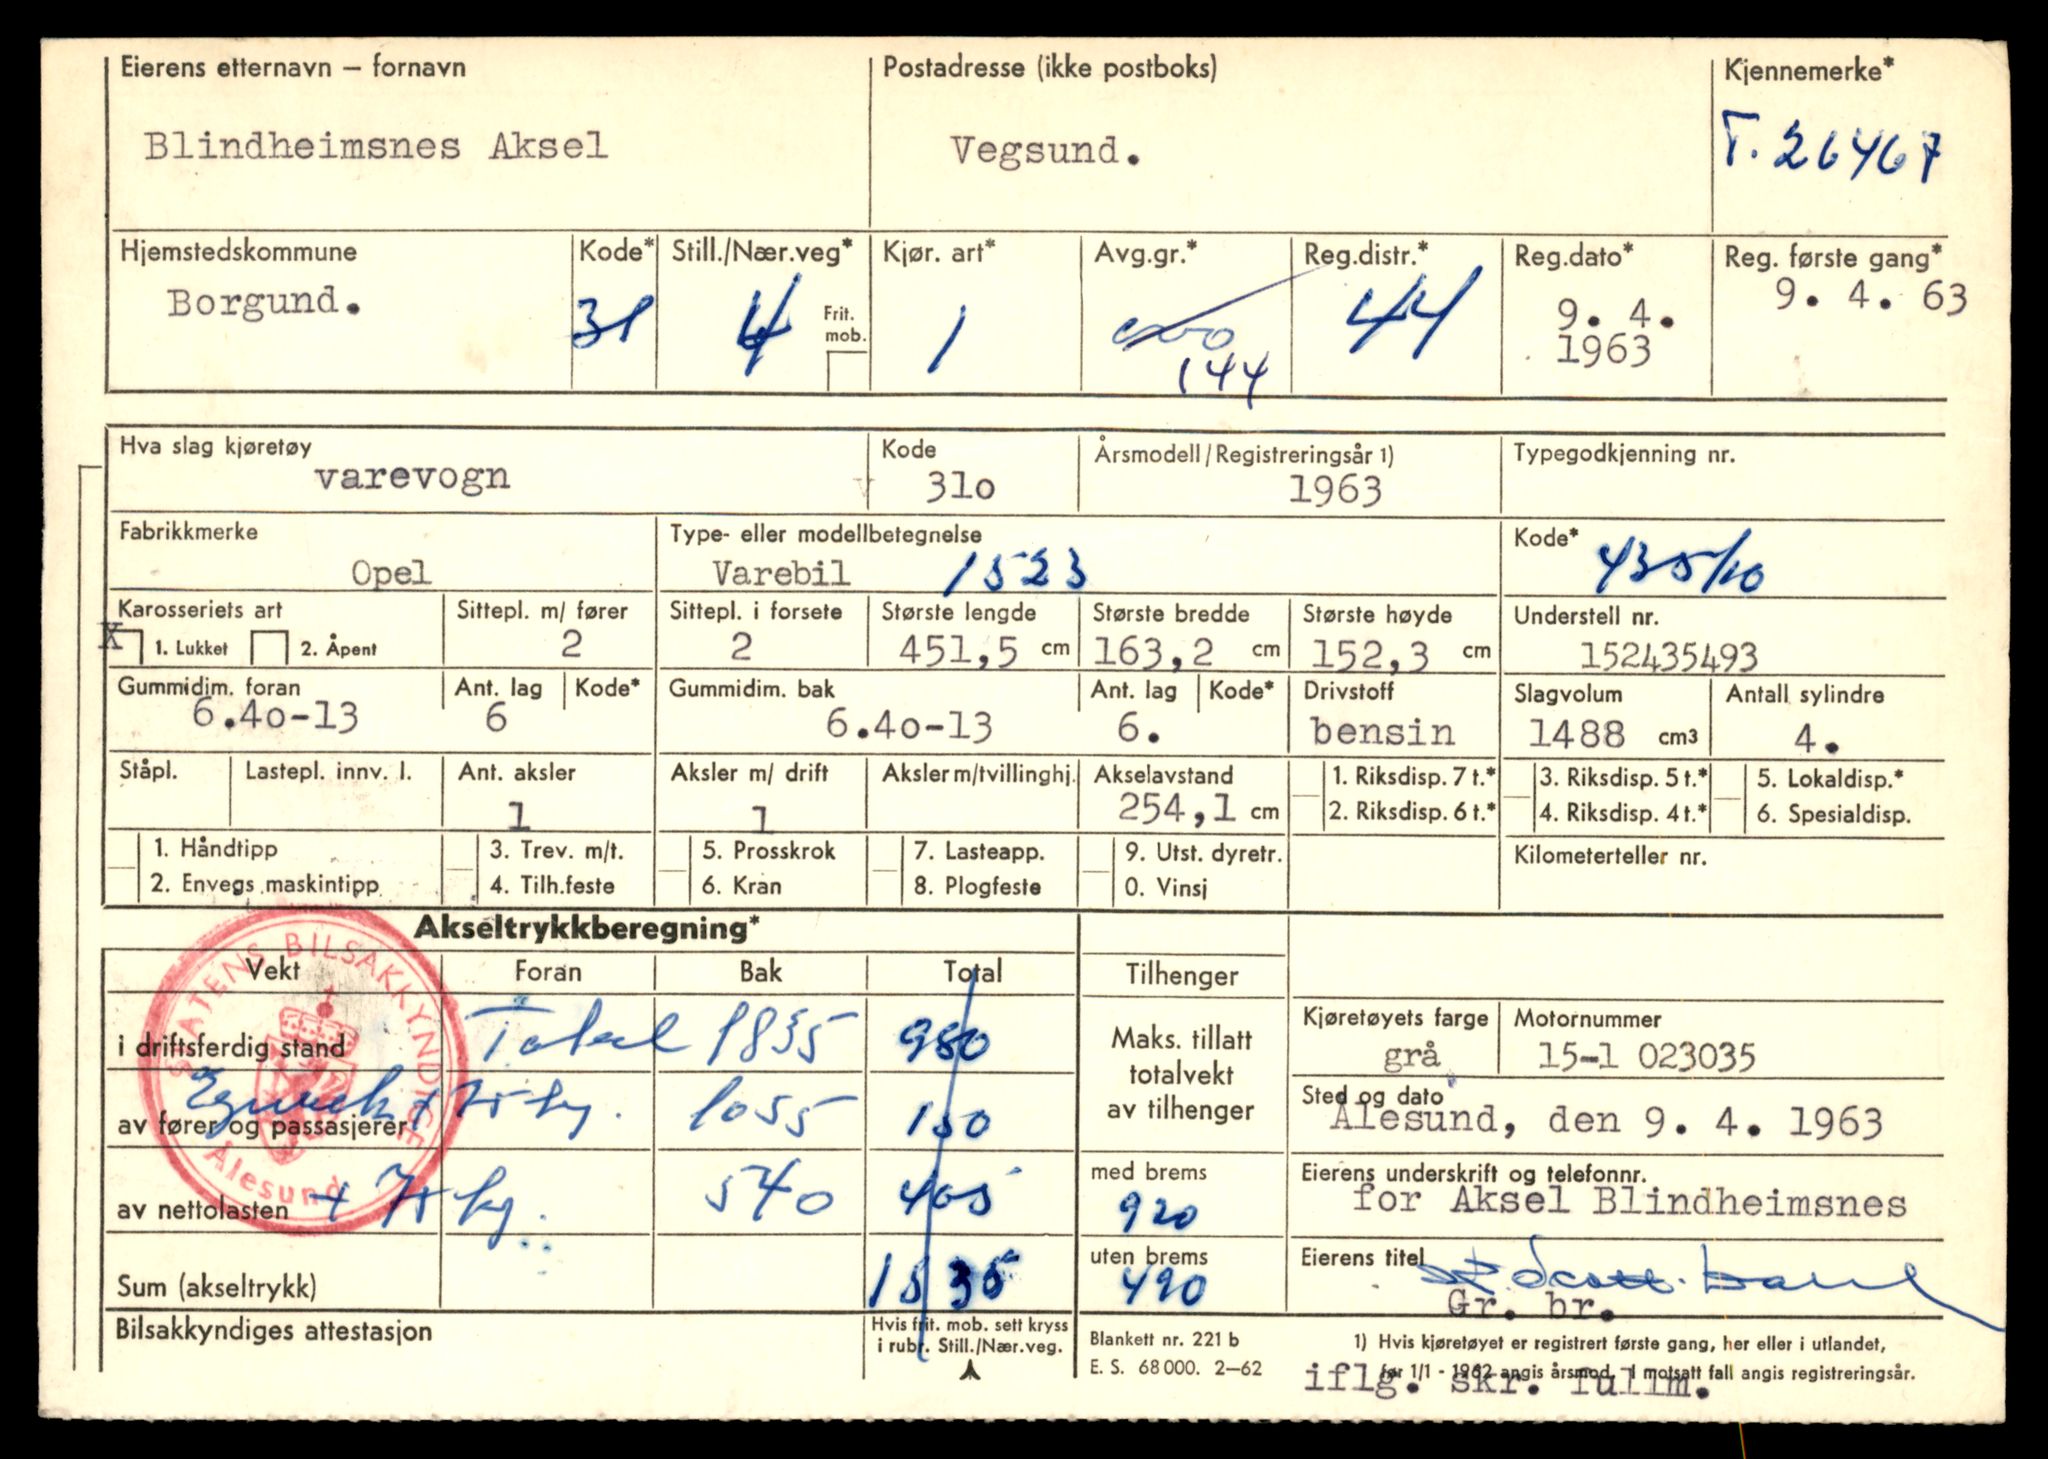 Eierens etternavn – fornavn Postadresse (ikke postboks) Kjennemerke*
Blindheimsnes Aksel Vegsund. T. 26467
Hjemstedskommune Kode* Still./Nær.veg* Kjør. art* Avg.gr.* Reg.distr.* Reg.dato* Reg. første gang*
Borgund. 31 4 Frit. mob. 1 44 9. 4. 1963 9. 4. 63
144
Hva slag kjøretøy Kode Årsmodell/Registreringsår 1) Typegodkjenning nr.
varevogn 31o 1963
Fabrikkmerke Type- eller modellbetegnelse Kode*
Opel Varebil 1523 435/10
Karosseriets art Sittepl. m/ fører Sittepl. i forsete Største lengde Største bredde Største høyde Understell nr.
X 1. Lukket 2. Åpent 2 2 451,5 cm 163,2 cm 152,3 cm 152435493
Gummidim. foran Ant. lag Kode* Gummidim. bak Ant. lag Kode* Drivstoff Slagvolum Antall sylindre
6.4o-13 6 6.4o-13 6. bensin 1488 cm3 4.
Ståpl. Lastepl. innv. l. Ant. aksler Aksler m/ drift Aksler m/tvillinghj. Akselavstand 1. Riksdisp. 7 t.* 3. Riksdisp. 5 t.* 5. Lokaldisp.*
1 1 254,1 cm 2. Riksdisp. 6 t.* 4. Riksdisp. 4 t.* 6. Spesialdisp.
1. Håndtipp 3. Trev. m/t. 5. Prosskrok 7. Lasteapp. 9. Utst. dyretr. Kilometerteller nr.
2. Envegs maskintipp 4. Tilh.feste 6. Kran 8. Plogfeste 0. Vinsj
Akseltrykkberegning*
STATENS BILSAKKYNDIGE
Ålesund
Vekt Foran Bak Total Tilhenger
i driftsferdig stand Total 1835 980 Maks. tillatt totalvekt av tilhenger Kjøretøyets farge Motornummer
grå 15-1 023035
Egenvekt + 75 kg. 1055 150 Sted og dato
av fører og passasjerer Ålesund, den 9. 4. 1963
av nettolasten + 75 kg. 540 405 med brems 920 Eierens underskrift og telefonnr.
for Aksel Blindheimsnes
Sum (akseltrykk) 1535 uten brems 490 Eierens titel
Gr. br.
Bilsakkyndiges attestasjon Hvis frit. mob. sett kryss Blankett nr. 221 b 1) Hvis kjøretøyet er registrert første gang, her eller i utlandet,
i rubr. Still./Nær.veg. E. S. 68 000. 2–62 før 1/1 - 1962 angis årsmod. I motsatt fall angis registreringsår.
iflg. skr. fullm.